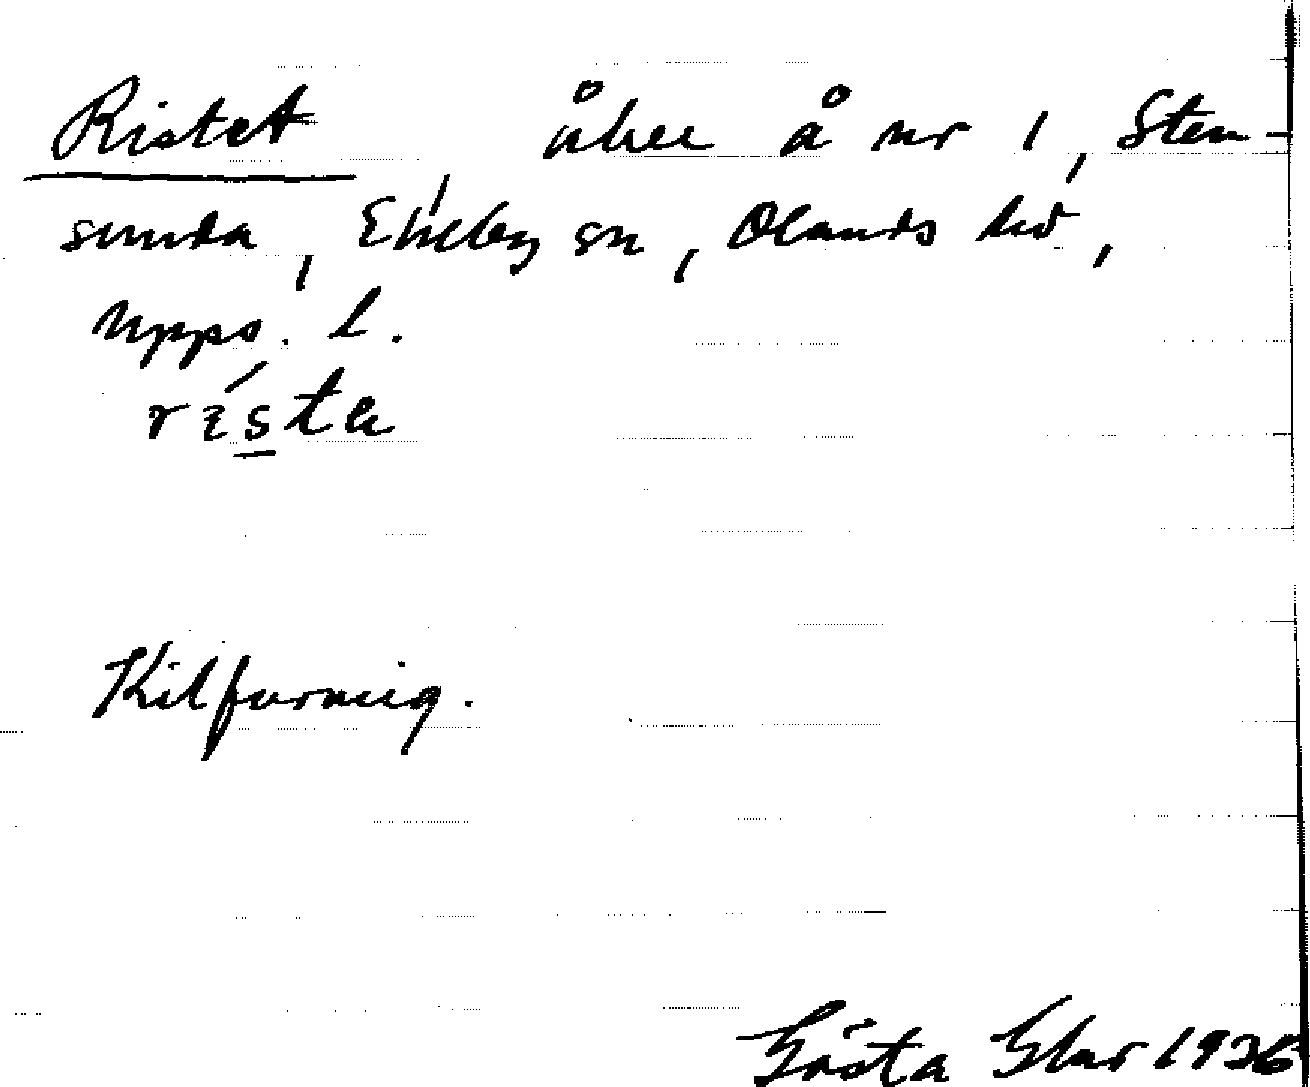 Ristet, åker å nr 1, Sten-
sunda, Ekeby sn, Olands hd,
Upps. l.
rı́sta
Kilformig.
Gösta Elar 1936